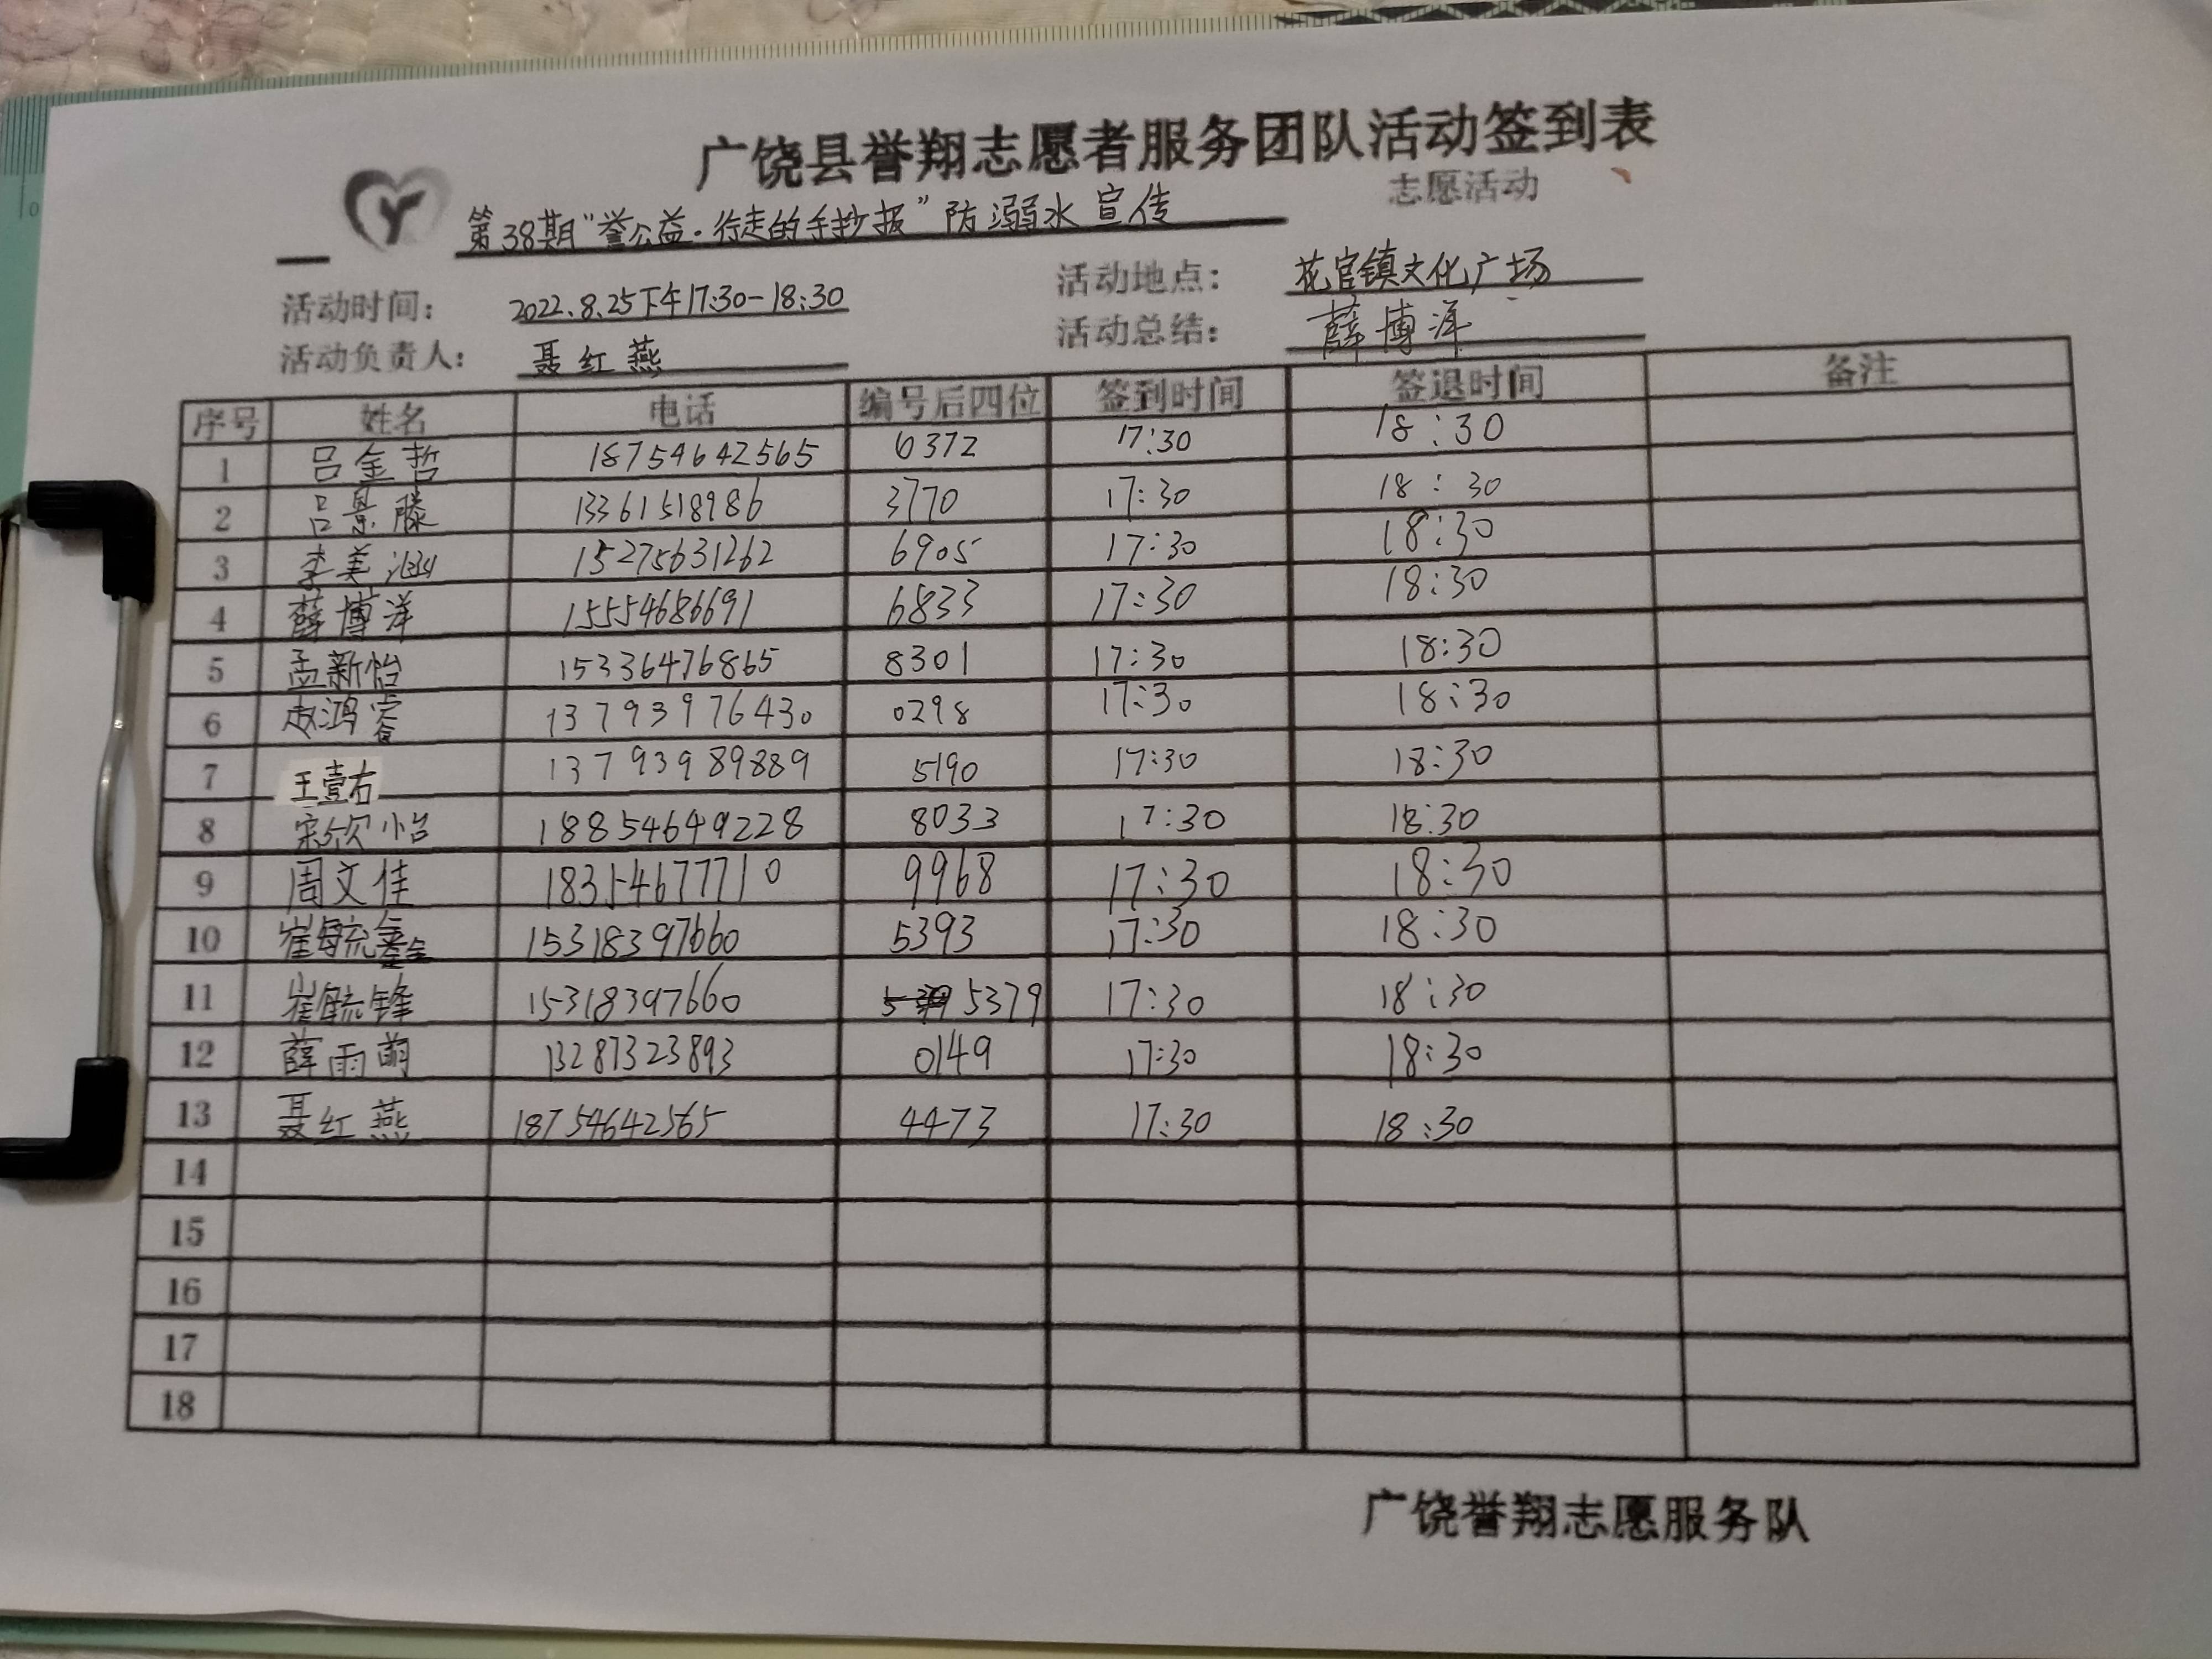 广饶县誉翔志愿者服务团队活动签到表
第38期“誉公益·行走的手抄报”防溺水宣传 志愿活动
活动时间: 2022.8.25下午17:30-18:30 活动地点: 花官镇文化广场
活动负责人: 聂红燕 活动总结: 薛博洋
序号 姓名 电话 编号后四位 签到时间 签退时间 备注
1 吕金哲 18754642565 0372 17:30 18:30
2 吕景滕 13361518986 3770 17:30 18:30
3 李美 15275631262 6905 17:30 18:30
4 薛博洋 15554686691 6833 17:30 18:30
5 孟新怡 15336476865 8301 17:30 18:30
6 赵鸿睿 13793976430 0298 17:30 18:30
7 王壹右 13793989889 5190 17:30 18:30
8 宋欣怡 18854649228 8033 17:30 18:30
9 周文佳 18354677710 9968 17:30 18:30
10 崔毓鑫 15318397660 5393 17:30 18:30
11 崔毓锋 15318397660 5379 17:30 18:30
12 薛雨萌 13287323893 0149 17:30 18:30
13 聂红燕 18754642565 4473 17:30 18:30
14
15
16
17
18
广饶誉翔志愿服务队